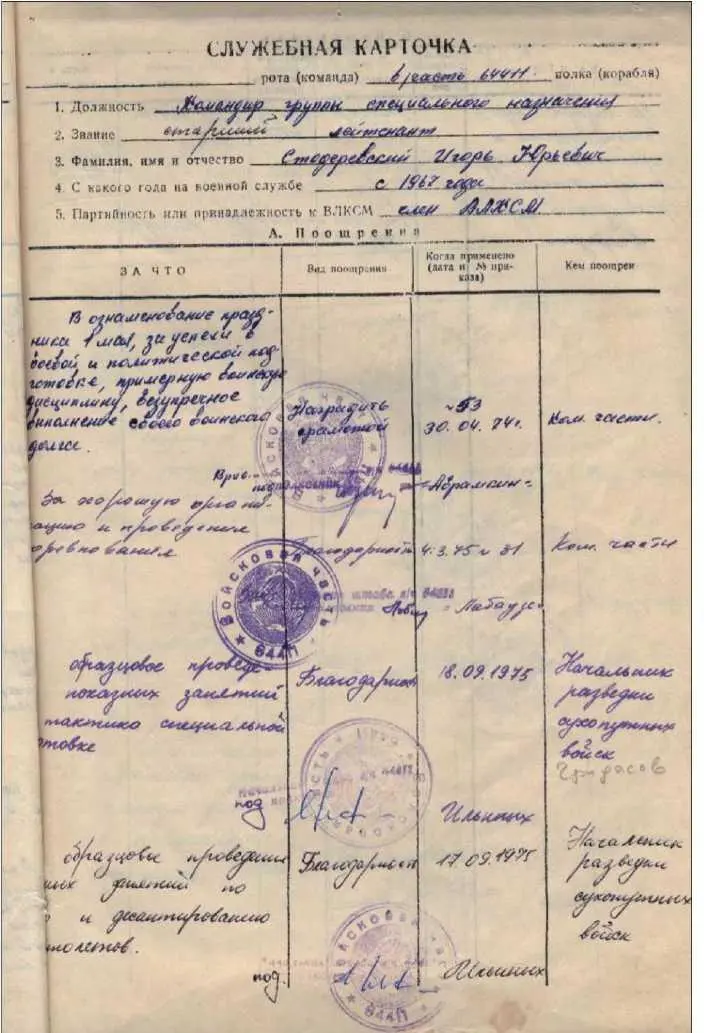 СЛУЖЕБНАЯ КАРТОЧКА
рота (команда) в/часть 64411 полка (корабля)
1. Должность Командир группы специального назначения
2. Звание старший лейтенант
3. Фамилия, имя и отчество Стодеревский Игорь Юрьевич
4. С какого года на военной службе с 1967 года
5. Партийность или принадлежность к ВЛКСМ член ВЛКСМ
А. Поощрения
ЗА ЧТО
Вид поощрения
Когда применено
(дата и № при-
каза)
Кем поощрен
В ознаменование празд-
ника 1 мая, за успехи в
боевой и политической под
готовке, примерную воинскую
дисциплину, безупречное
выполнение своего воинского
долга.
Наградить
грамотой
№ 53
30.04.74г.
Ком. части.
Врио
подполковник
Абрамкин
За хорошую органи-
зацию и проведение
соревнования
Благодарность
4.3.75 № 31
Ком. части
ВОЙСКОВАЯ ЧАСТЬ
64411
штаба в/ч 64411
образцовое проведе-
показных занятий
тактико специальной
отовке
Благодарность
18.09.1975
Начальник
разведки
сухопутных
войск
Гридасов
под
Ильиных
образцовое проведение
ных занятий по
и десантированию
молетов.
Благодарность
17.09.1975
Начальник
разведки
сухопутных
войск
под.
Ильиных
ВОЙСКОВАЯ
64411